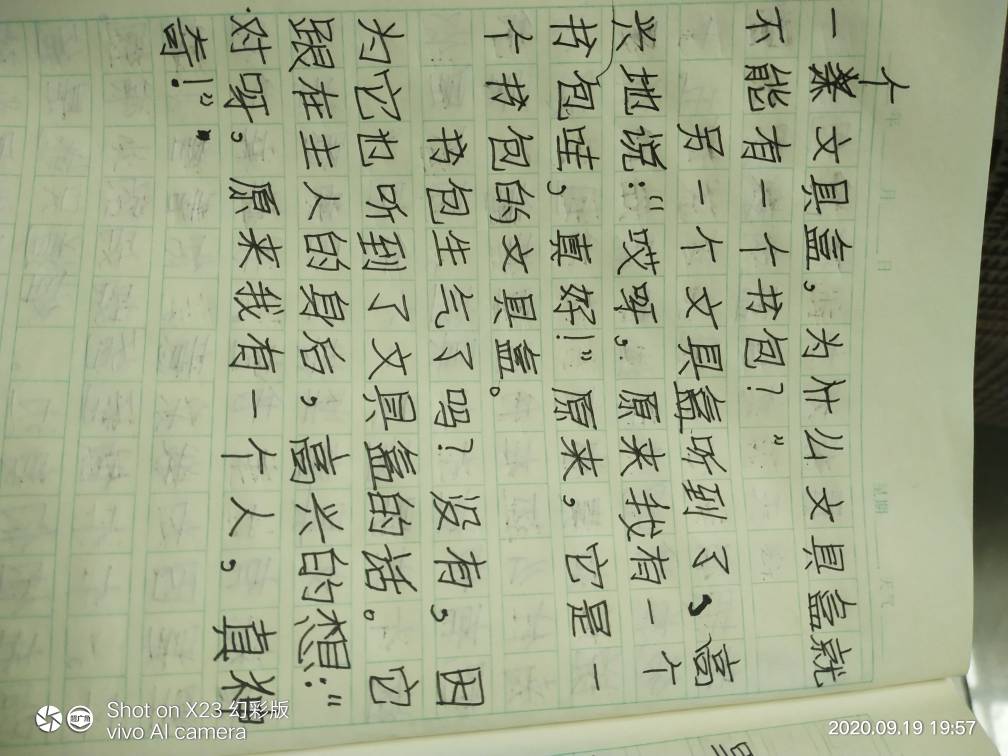 年 月 日 星期 天气
一个文具盒，为什么文具盒就
不能有一个书包？”
另一个文具盒听到了，高
兴地说：“哎呀，原来我有一个
书包哇，真好！”原来，它是一
个书包的文具盒。
书包生气了吗？没有，因
为它也听到了文具盒的话。它
跟在主人的身后，高兴的想：“
对呀，原来我有一个人，真神
奇！”
超广角
Shot on X23 幻彩版
vivo AI camera
2020.09.19 19:57